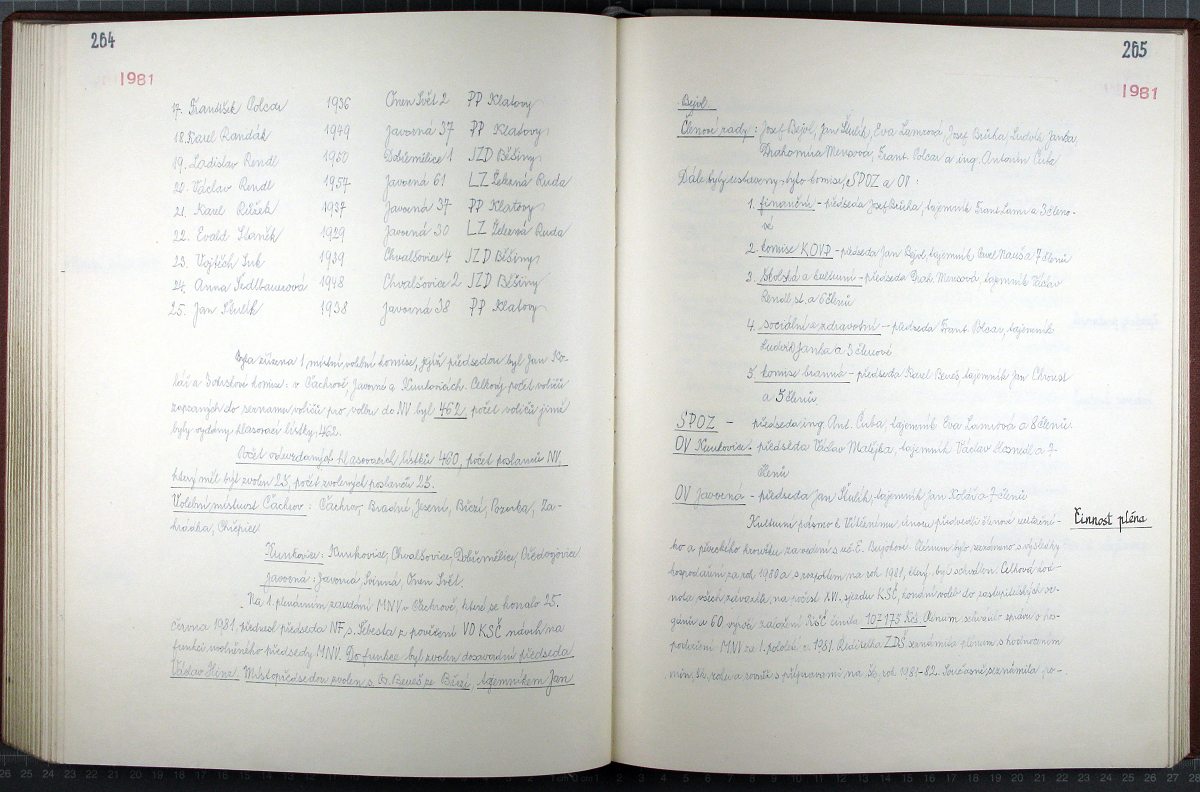 264
1981
17. František Polcar 1936 Onen Svět 2 PP Klatovy
18. Karel Randák 1949 Javorná 37 PP Klatovy
19. Ladislav Rendl 1950 Dobřemělice 1 JZD Běšiny
20. Václav Rendl 1957 Javorná 61 LZ Železná Ruda
21. Karel 1937 Javorná 37 PP Klatovy
22. Evald Staněk 1929 Javorná 30 LZ Železná Ruda
23. Vojtěch Suk 1939 Chvalšovice 4 JZD Běšiny
24. Anna Sedlbauerová 1948 Chvalšovice 2 JZD Běšiny
25. Jan Študlk 1938 Javorná 38 PP Klatovy
Byla zřízena 1 místní volební komise, jejíž předsedou byl Jan Ko-
lář a 3 okrskové komise: v Čachrově, Javorné a Kunkovicích. Celkový počet voličů
zapsaných do seznamu voličů pro volbu do NV byl 462, počet voličů jimž
byly vydány hlasovací lístky, 462.
Počet odevzdaných hlasovacích lístků 460, počet poslanců NV,
který měl být zvolen 25, počet zvolených poslanců 25.
Volební místnost Čachrov: Čachrov, Bradné, Jesení, Březí, Zá-
hrádka, Chřepice
Kunkovice: Kunkovice, Chvalšovice, Dobřemělice,
Javorná: Javorná, Onen Svět.
Na 1. plenárním zasedání MNV v Čachrově, které se konalo 25.
června 1981, přednesl předseda NF, s. Šebesta z pověření VO KSČ návrh na
funkci uvolněného předsedy MNV. Do funkce byl zvolen dosavadní předseda
Václav Místopředsedou zvolen s. Beneš ze Březí, tajemníkem Jan
265
1981
Bejol.
Členové rady: Josef Bejol, Jan Eva Lamrová, Josef Brůha, Ludvík Janka,
Drahomíra Menxová, Frant. Polcar a ing. Antonín Čuba
Dále byly sestaveny: komise, SPOZ a OV:
1. finanční - předseda Josef Brůha, tajemník Frant. Lamr a 3 členo-
vé
2. komise KOVP - předseda Jan Bejol, tajemník Pavel a 7 členů
3. školská a kulturní - předseda Drah. Menxová, tajemník Václav
Rendl st. a 6 členů
4. sociální a zdravotní - předseda Frant. Polcar, tajemník
Ludvík Janka a 3 členové
5. komise branná - předseda Karel Beneš, tajemník Jan Chroust
a 5 členů
SPOZ - předseda ing. Ant. Čuba, tajemník Eva Lamrová a 8 členů
OV Kunkovice: předseda Václav Matějka, tajemník Václav Hosnedl a 7
členů
OV Javorná - předseda Jan tajemník Jan Kolář a 7 členů
Činnost pléna
Kulturní pásmo k Vítěznému únoru předvedli členové recitační-
ho a pěveckého kroužku za vedení s. uč. E. Plénum bylo seznámeno s výsledky
hospodaření za rok 1980 a s rozpočtem na rok 1981, který byl schválen. Celková hod-
nota všech závazků, na počest XVI. sjezdu KSČ, konání voleb do zastupitelských or-
gánů a 60. výročí založení KSČ činila 107 175 Kčs. Plénum schválilo zprávu o hos-
podaření MNV za 1. pololetí r. 1981. Ředitelka ZDŠ seznámila plénum s hodnocením
min. šk. roku a rovněž s přípravami na šk. rok 1981-82. Současně seznámila ro-